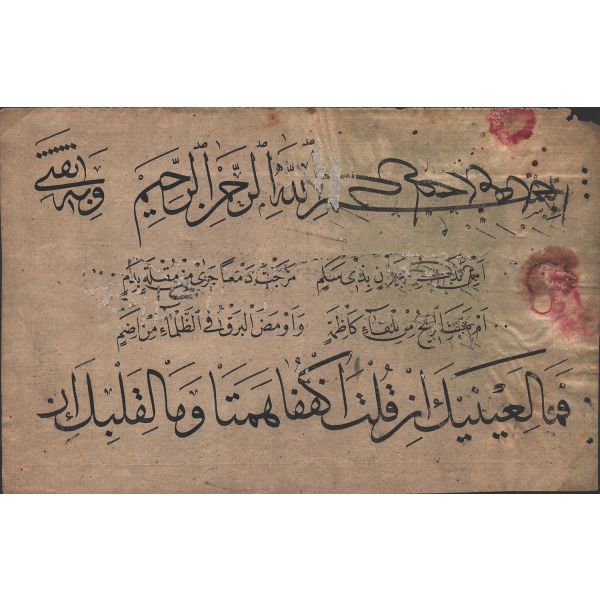 بسم الله الرحمن الرحيم وبه ثقتى
امن تذكر جيران بذى سلم مزجت دمعا جرى من مقلة بدم
ام هبت الريح من تلقاء كاظمة واومض البرق فى الظلماء من اضم
فما لعينيك ان قلت اكففا همتا وما لقلبك ان